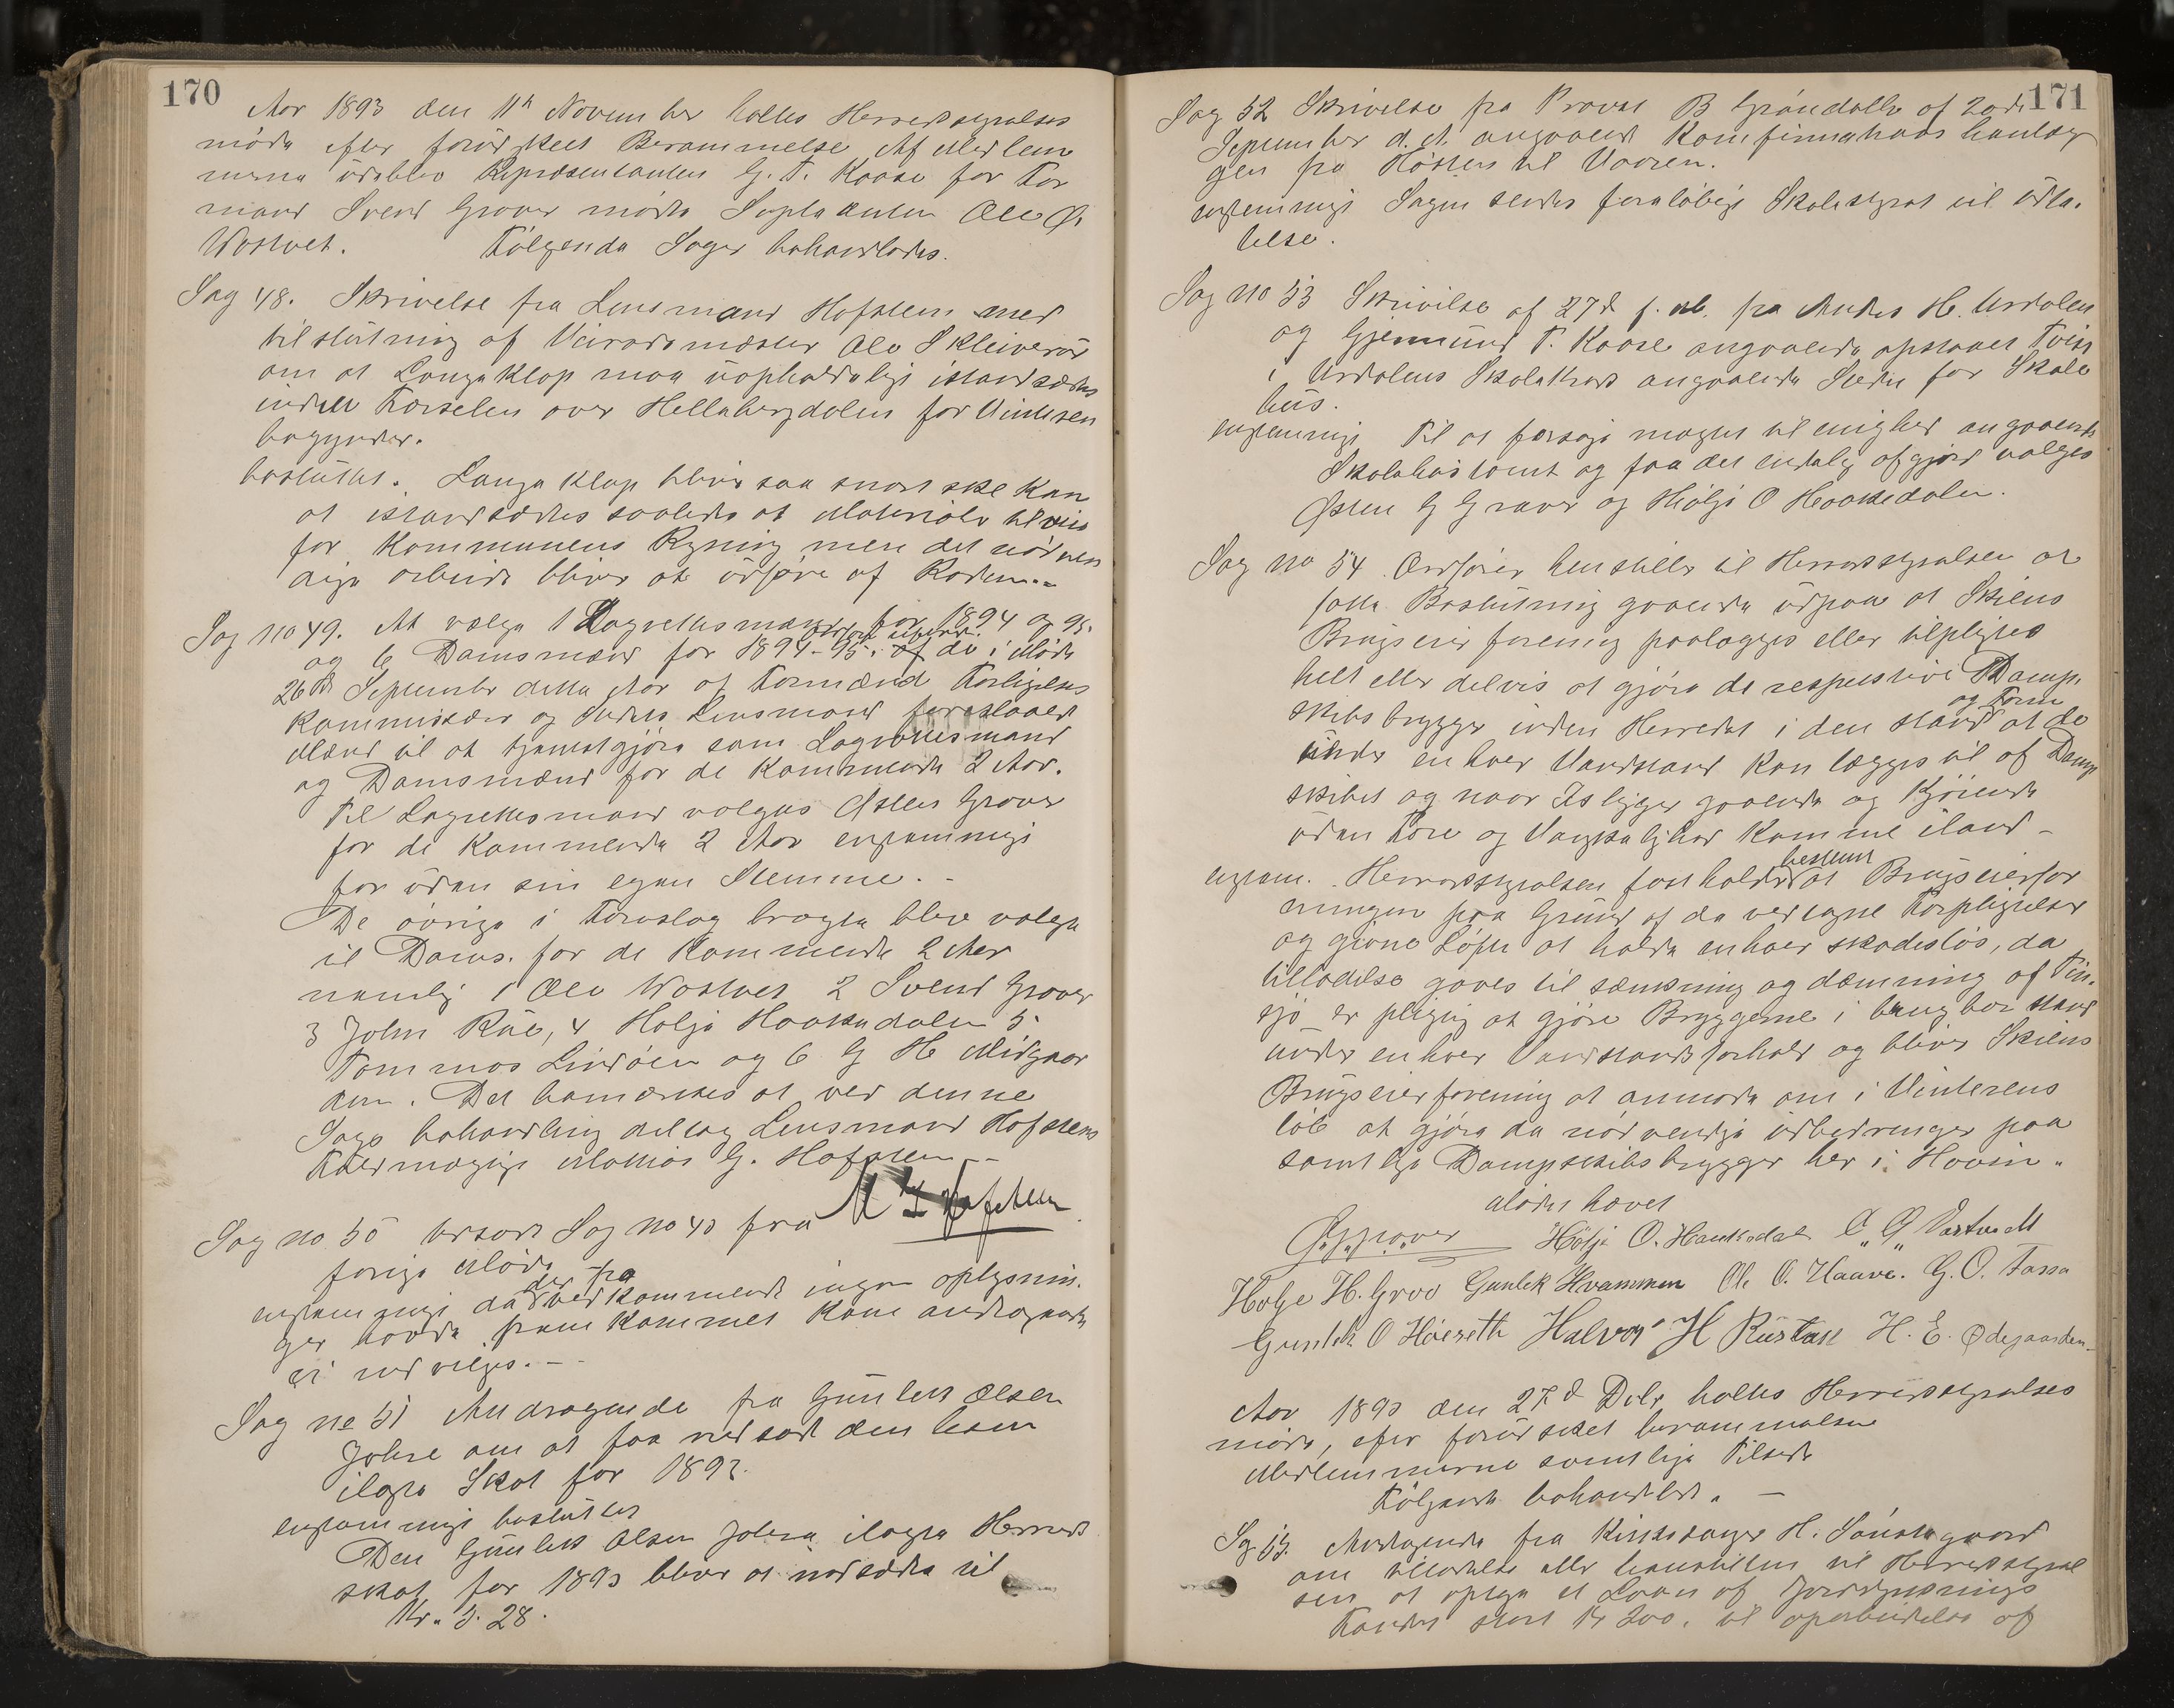 170
Aar 1893 den 11te November holtes Herredsstyrelses
møde efter forudskeet Berammelse Af Medlem
merne udeblev Repræsentanten G. T. Kaase for For
mand Svend Graver mødte Supleanten Ole G.
Wostvet. Følgende Sager behandledes.
Sag 48. Skrivelse fra Lensmand Hofsten med
tilslutning af Veivaadsmester Ole Skleiveraas
om at Langeklop maa uopholdelige istandsættes
inden Kørselen over Helleberrgdalen for Vinteren
begynder.
besluttet. Lange Klop bliver saa snart ske Kan
at istandsættes saaledes at Materialer tilveies
for Kommunens Regning mens det nødven
dige arbeide bliver at udføre af Roden.
Sag no 49. At vælge 1 Lagrettesmand for 1894 og 95.
og 6 Domsmænd for 1894-95 af de i Møde
26de September dette Aar af Formænd Forligelses
Kommissær og Lensmand foreslaaede
Mænd til at tjenestgjøre som Lagrettesmand
og Domsmænd for de Kommende 2 Aar.
Til Lagrettesmand valgtes Østen Graver
for de Kommende 2 Aar enstemmigt
for uden sin egen Stemme.
De øvrige i Forslag bragte blev valgt
til Doms. for de Kommende 2 Aar
nemlig 1 Ole Wostvet 2 Svend Graver
3 John Rue, 4 Holje Haakedalen 5.
Tommas Lindøen og 6 G H Midgaar
den. Det bemærkes at ved denne
Sags behandling deltog Lensmand Hofstens
Fuldmægtige Mathias G. Hofsten
M G Hofsten
Sag no 50 utsatt Sag no 43 fra
forige Møde
enstemmigt da der fra vedkommende ingen oplysnin
ger havde fremkommet Kan andragende
ei indvilges.
Sag no 51 Andragende fra Gunleik Olsen
Johre om at faa nedsat den ham
ilagte Skat for 1893.
enstemmigt besluttet
Den Gunleik Olsen Johre ilagte Herreds
skat for 1893 bliver at nedsætte til
Kr. 5.28.
171
Sag 52 Skrivelse fra Provst B Grøndahl af 2ode
September d. A. angaaende Komfirmations henlæg
gen fra Høsten til Vaaren.
enstemmigt Sagen sendes foreløbigt Skolestyret til udta
lelse.
Sag no 53 Skrivelse af 27d f. M. fra Anders H. Urdalen
og Gjermund T. Kaase angaaende opstaaet Tvist
i Urdalens Skolekreds angaaende Stedet for Skole
hus.
enstemmigt Til at forsøge mægle til enighed angaaende
Skolehustomt og faa det endelig afgjort valges
Østen G Graver og Hølje O Haakedalen.
Sag no 54 Ordfører henstiller til Herredsstyrelsen at
fatte Beslutning gaaende udpaa at Skiens
Brugseierforening paalægges eller tilpligtes
helt eller delvis at gjøre de respektive Damp
skibsbrygger inden Herredet i den stand og Form at de
under enhver Vandstand kan lægges til af Damp
skibet og naar Is ligger gaaende og Kjørende
uden Fare og Vanskelighed Komme iland
enstem. Herredsstyrelsen fastholder bestemt at Brugseierfor
eningen paa Grund af de vedtagne Forpligtelser
og givne Løfte at holde enhver skadesløs, da
tilladelse gaves til sænkning og dæmning af Tin
sjø er pligtig at gjøre Bryggerne i brugbar stand
under enhver Vandstandsforhold og bliver Skiens
Brugseierforening at anmode om i Vinterens
løb at gjøre de nødvendige udbedringer paa
samtlige Dampskibsbrygger her i Hovin.
Mødet hævet
Hølje O. Haukedal O. G. Vastveit
Holje H. Groo Gunlek Hvammen Ol. O. Haave. G. O. Fossa
Gunleik O Høiseth Halvor H Rustan H. E. Ødegaarden
Aar 1893 den 27d Dcbr. holtes Herredsstyrelses
møde, efter forudskeet berammelse
Medlemmerne samtlige Tilstede
Følgende behandlet.
Sag 55. Andragende fra Kirkesanger H. Sønstegaard
om tilladelse eller henstillen til Herredsstyrel
sen at optage et Laan af Jorddyrknings
Fondet stort Kr 300. til oparbeidelse af